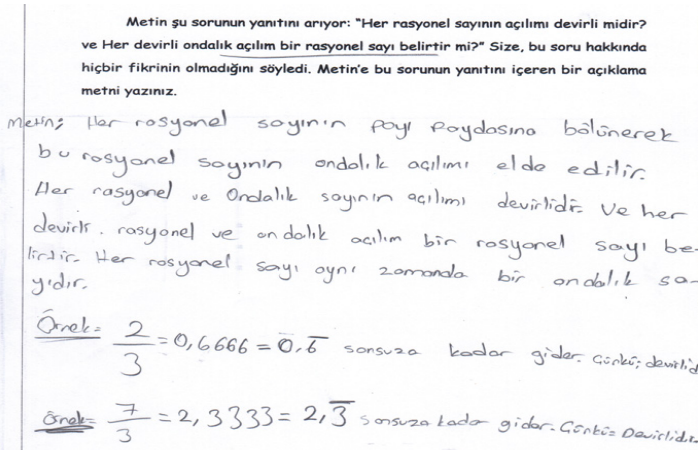 Metin şu sorunun yanıtını arıyor: "Her rasyonel sayının açılımı devirli midir?
ve Her devirli ondalık açılım bir rasyonel sayı belirtir mi?" Size, bu soru hakkında
hiçbir fikrinin olmadığını söyledi. Metin'e bu sorunun yanıtını içeren bir açıklama
metni yazınız.
Metin; Her rasyonel sayının payı paydasına bölünerek
bu rasyonel sayının ondalık açılımı elde edilir.
Her rasyonel ve Ondalık sayının açılımı devirlidir. Ve her
devirli. rasyonel ve ondalık açılım bir rasyonel sayı be-
lirtir. Her rasyonel sayı aynı zamanda bir ondalık sa-
yıdır.
Örnek= 2/3 = 0,6666 = 0,6̅ sonsuza kadar gider. Çünkü; devirlid
Örnek= 7/3 = 2,3333 = 2,3̅ sonsuza kadar gider. Çünkü= Devirlidir.